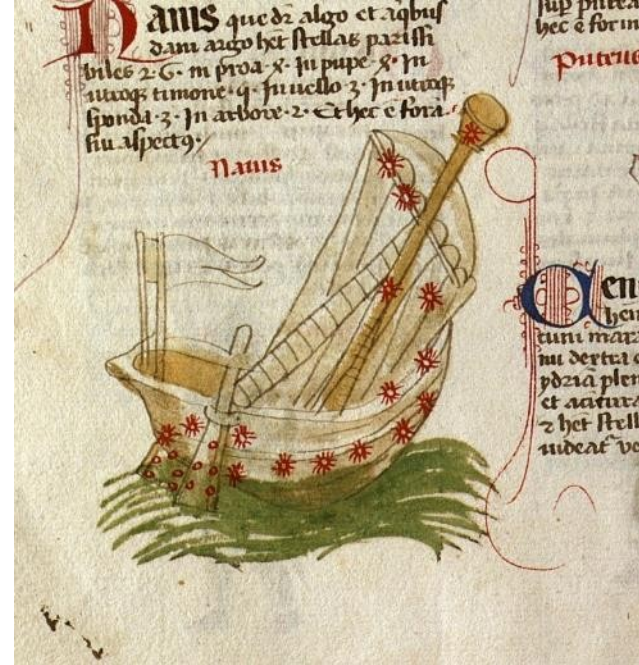 Nauis que dr̄ algo et a q̄bus
dam argo het stellas parissi
biles 26. in proa x. In pupe x. In
utroq; timone. 9. In uello 3. In utroq;
sponda. 3. In arbore. 2. Et hec ē fora
sui aspectꝯ.
Nauis
sup putea
hec ē form
Puteus
Cen
hem
mu dextra
ydriā plen
et
2 het stell
uideat̄ ve